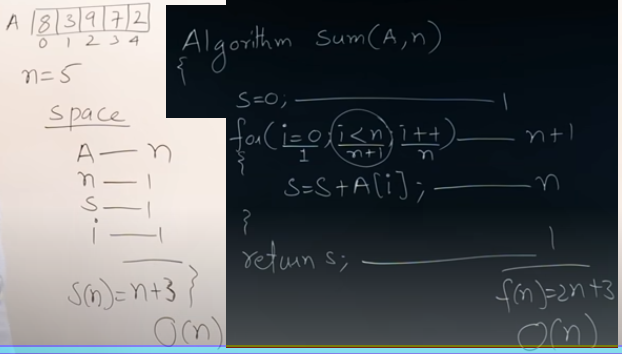 A 8 3 9 7 2
0 1 2 3 4
n=5
space
A — n
n — 1
s — 1
i — 1
S(n)=n+3
O(n)
Algorithm Sum(A,n)
{
s=0; — 1
for(i=0; i<n; i++) — n+1
1 n+1 n
{
s=s+A[i]; — n
}
return s; — 1
}
f(n)=2n+3
O(n)